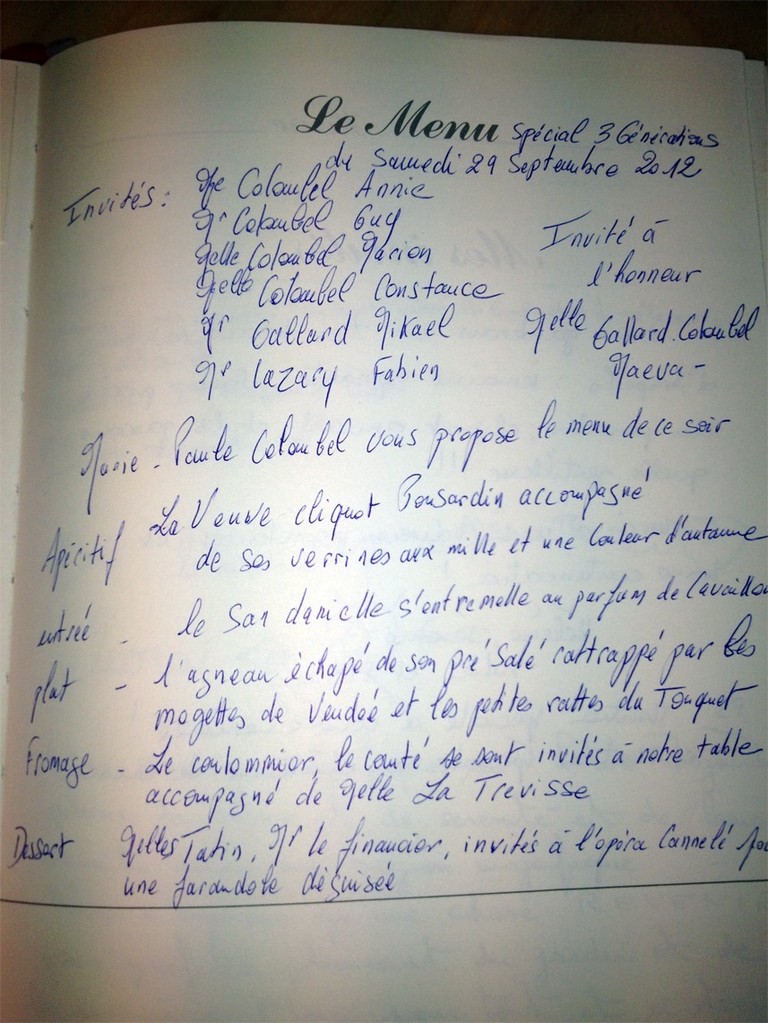 Le Menu Spécial 3 Générations
du Samedi 29 Septembre 2012
Invités : Me Colombel Annie
Mr Colombel Guy
Melle Colombel Marion
Melle Colombel Constance
Mr Gallard Mikael
Mr Lazary Fabien
Invité à
l'honneur
Melle Gallard.Colombel
Maeva -
Marie - Paule Colombel vous propose le menu de ce soir
Apéritif La Veuve cliquot Ponsardin accompagné
de ses verrines aux mille et une couleur d'automne
entrée - le San danielle s'entremelle au parfum de Cavaillon
plat - l'agneau échapé de son pré Salé rattrappé par les
mogettes de Vendée et les petites rattes du Touquet
Fromage - Le coulommier, le comté se sont invités à notre table
accompagné de Melle La Trevisse
Dessert Melles Tatin, Mr le financier, invités à l'opéra Cannelé
une farandole déguisée